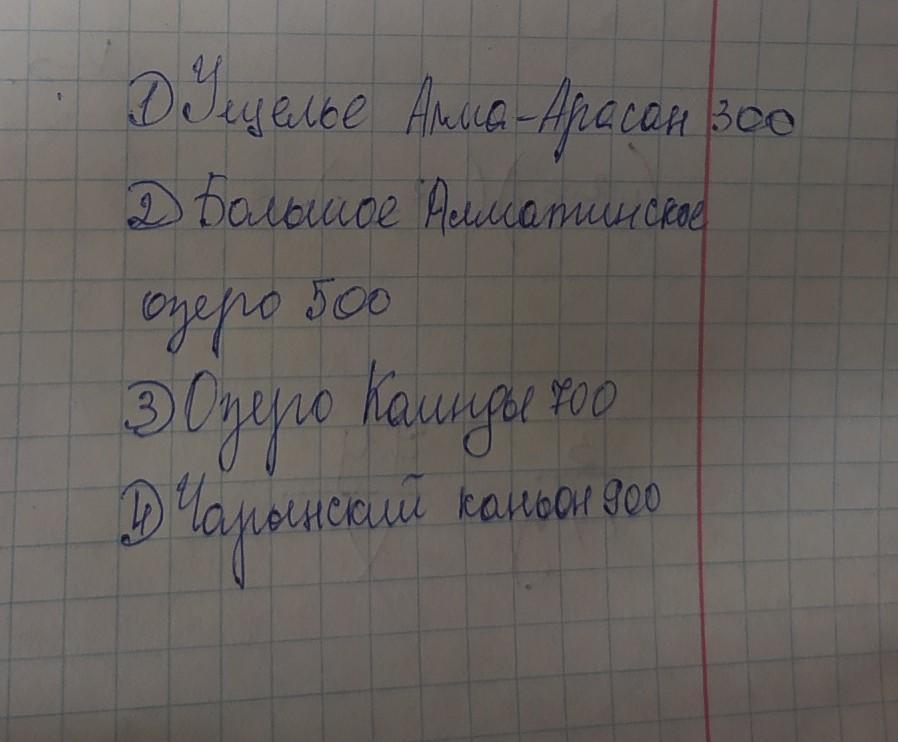 1) Ущелье Алма-Арасан 300
2) Большое Алматинское
озеро 500
3) Озеро Каинды 700
4) Чарынский каньон 900